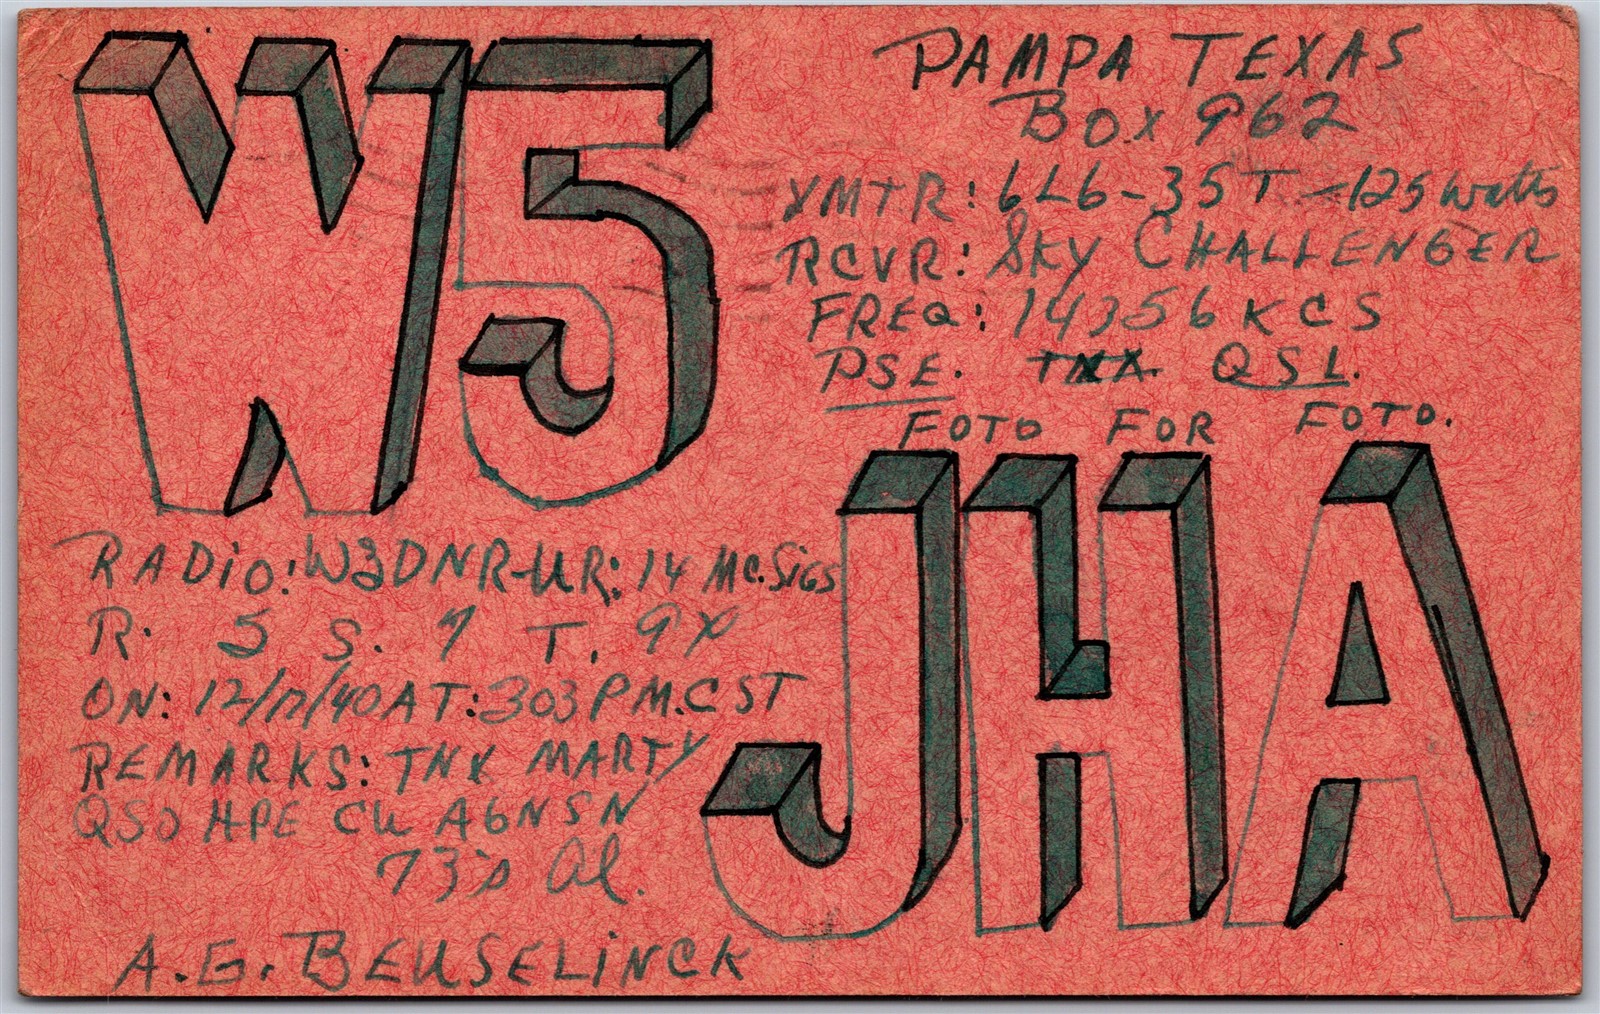 W5
PAMPA TEXAS
BOX 962
XMTR: 6L6-35T-125 watts
RCVR: SKY CHALLENGER
FREQ: 14356 KCS
PSE. TNX QSL.
FOTO FOR FOTO.
JHA
RADiO: W3DNR-UR: 14 Mc. SiGS
R. 5 S. 7 T. 9X
ON: 12/17/40 AT: 303 P.M. CST
REMARKS: TNX MARTY
QSO HPE CU AGNSN
73's Al.
A.G. BEUSELiNCK